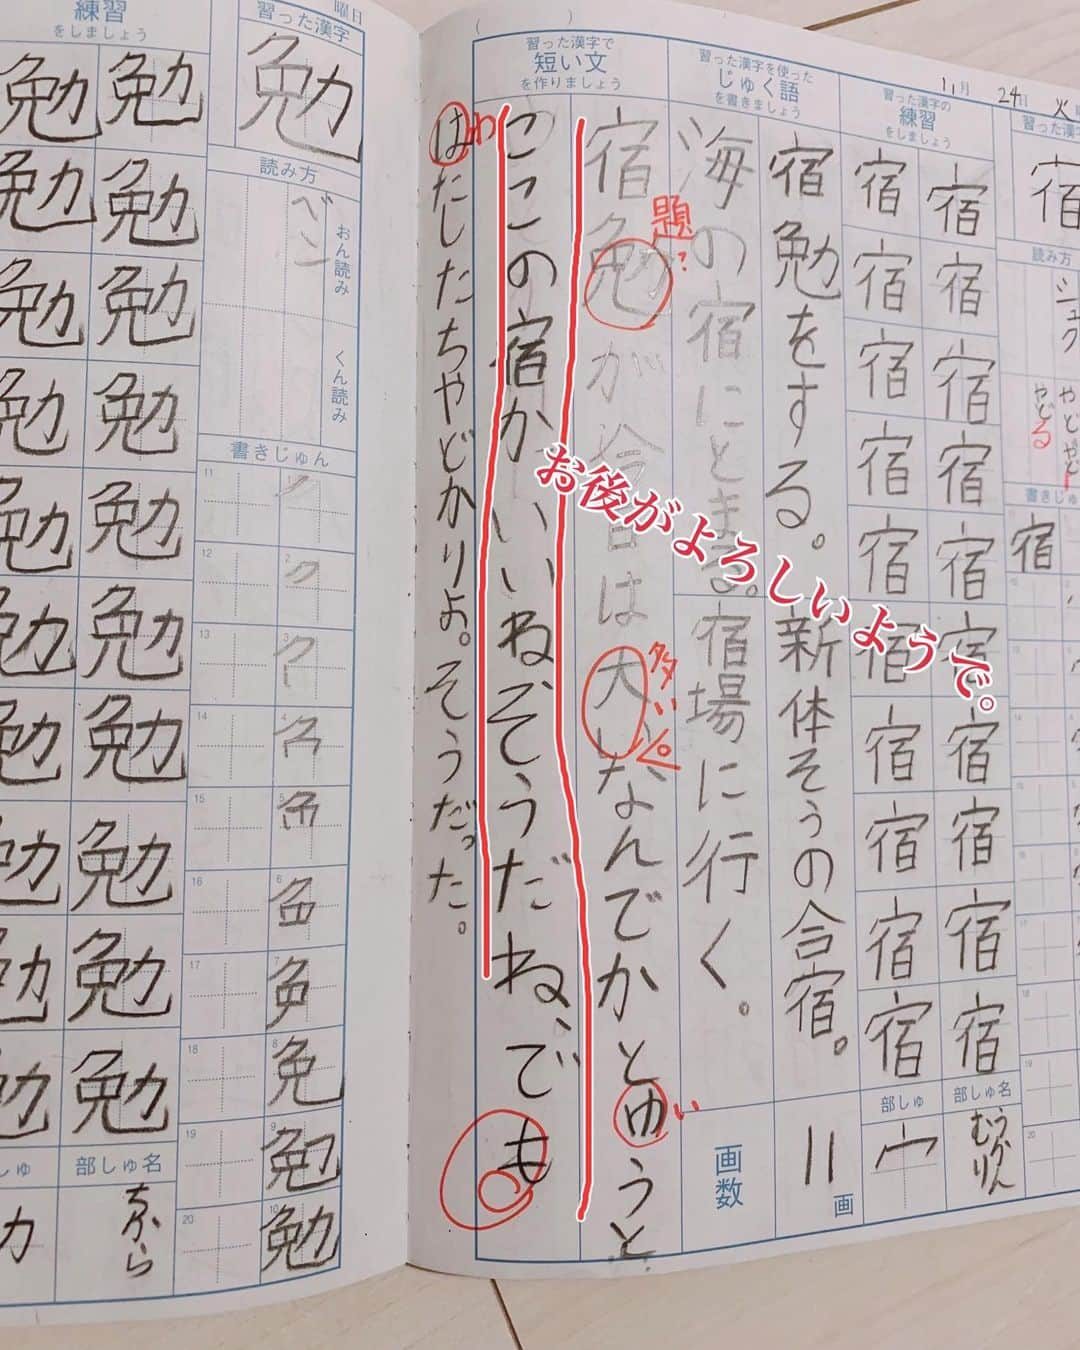 11月24日 火
習った漢字
宿
読み方
シュク
やど やど
やどる
書きじゅ
宿
習った漢字の
練習
をしましょう
宿 宿 宿 宿 宿 宿 宿 宿 宿 宿
宿 宿 宿 宿 宿 宿 宿 宿 宿 宿
部しゅ名
うかんむり
部しゅ
宀
習った漢字を使った
じゅく語
を書きましょう
宿勉をする。新体そうの合宿。
海の宿にとまる。宿場に行く。
画数
11画
習った漢字で
短い文
を作りましょう
宿勉が今日は大いなんでかとゆうと
題?
多い。
い
ここの宿かいいねぞうだね、でも
はたしたちやどかりよ。そうだった。
わ
お後がよろしいようで。
曜日
習った漢字
勉
読み方
おん読み
くん読み
ベン
書きじゅん
勉
練習
をしましょう
勉 勉 勉 勉 勉 勉 勉 勉 勉 勉
勉 勉 勉 勉 勉 勉 勉 勉 勉 勉
部しゅ名
ちから
しゅ
力